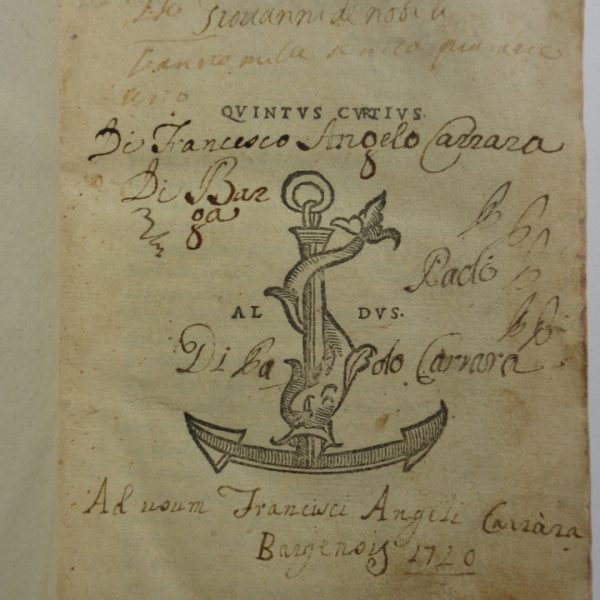 Giovanni de nobili
QVINTVS CVRTIVS.
Di Francesco Angelo Carrara
Di Bar
ga
Paolo
AL DVS.
Di Pa olo Carrara
Ad usum Francisci Angeli Carràra
Bargensis 1720